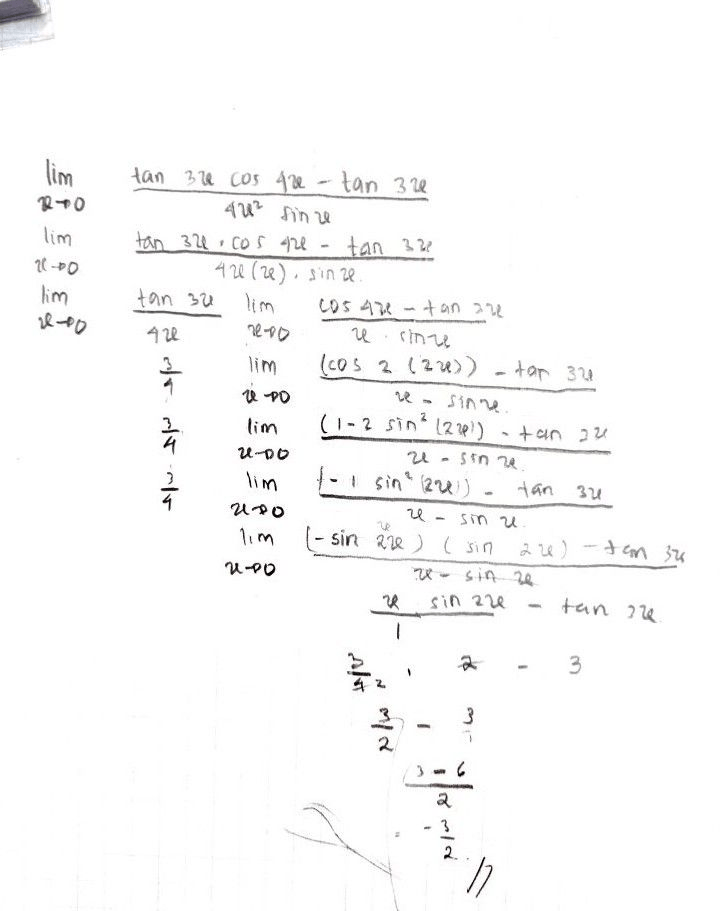 lim tan 3x cos 4x - tan 3x
x→0 4x² sin x
lim tan 3x . cos 4x - tan 3x
x→0 4x(x) . sin x.
lim tan 3x lim cos 4x - tan 3x
x→0 4x x→0 x . sin x
3/4 lim (cos 2 (2x)) - tan 3x
x→0 x - sin x.
3/4 lim (1-2 sin² (2x)) - tan 3x
x→0 x - sin x
3/4 lim (-1 sin² (2x)) - tan 3x
x→0 x - sin x.
lim (-sin 2x) (sin 2x) - tan 3x
x→0 x - sin x
x sin 2x - tan 3x
1
3/4 2 . 2 - 3
3/2 - 3/1
3 - 6
2
= - 3/2 //